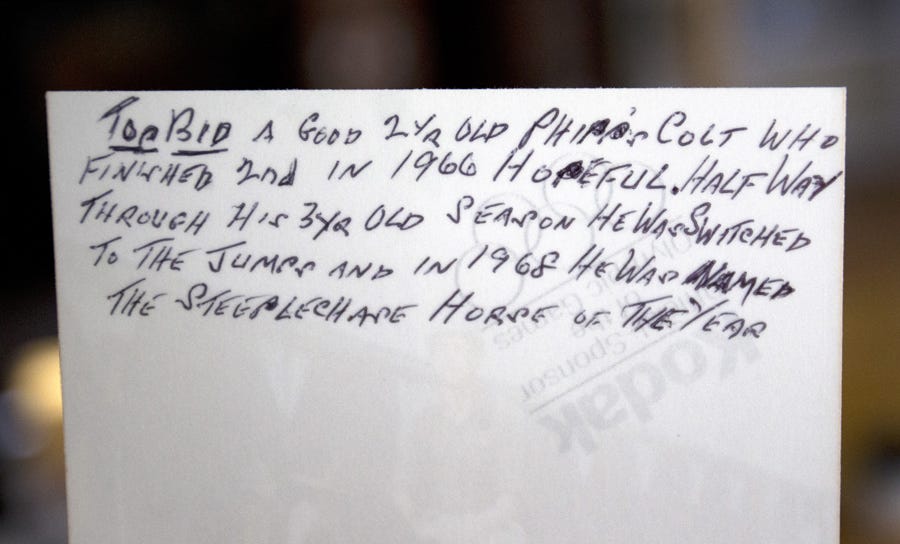 Top Bid A Good 2Yr Old Phipp's Colt Who
Finished 2nd in 1966 Hopeful. Half Way
Through His 3yr Old Season He Was Switched
To The Jumps and in 1968 He Was Named
The Steeplechase Horse of The Year
Olympic Games
of the
Sponsor
Kodak